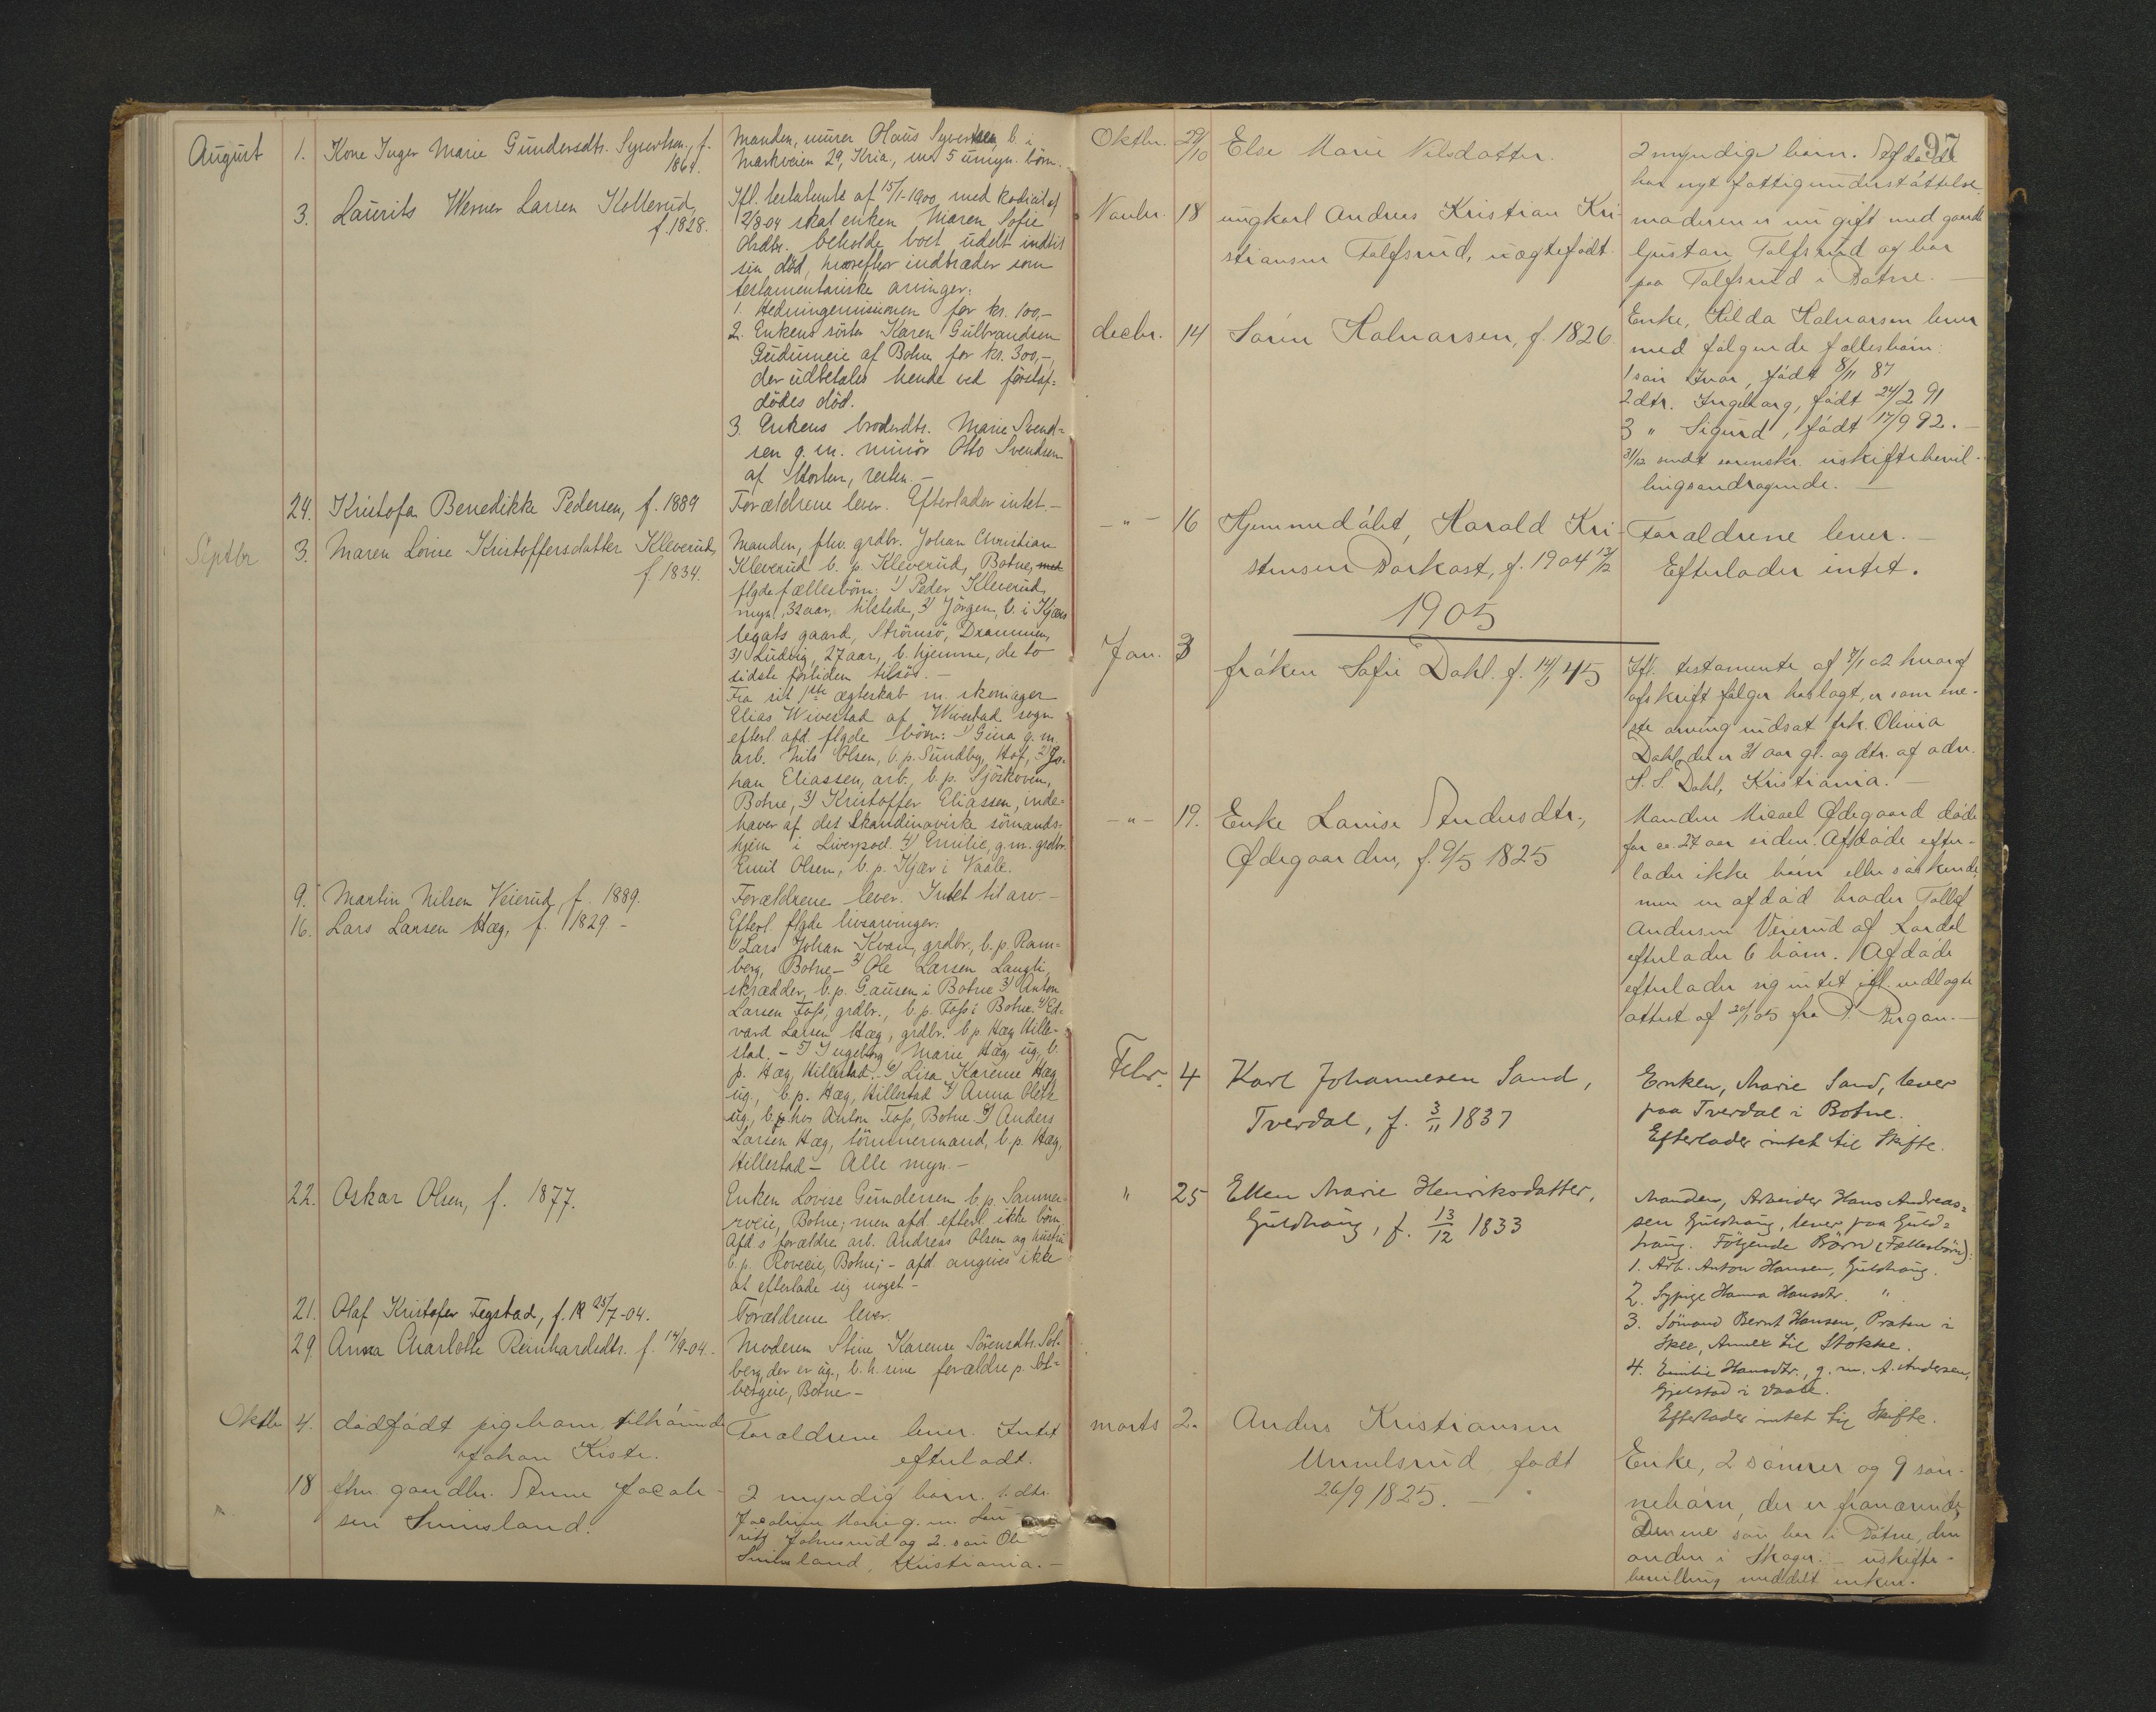 August 1. Kone Inger Marie Gundersdtr. Syvertsen, f. 1864.
Manden, murer Olaus Syvertsen, b. i
Markveien 29, Kria., m. 5 umyn. börn.
3. Laurits Werner Larsen Kolterud, f. 1828.
Ifl. testamente af 15/1-1900 med kodicil af
2/8 04 skal enken Maren Sofie
Olsdtr. beholde boet udelt indtil
sin död, hvorefter indtræder som
testamentariske arvinger:
1. Hedningemissionen for kr. 100,-
2. Enkens söster Karen Gulbrandsen
Gudumeie af Botne for kr. 300,-,
der udbetales hende ved förstaf-
dödes död.
3. Enkens broderdtr. Marie Svend-
sen g. m. minör Otto Svendsen
af Horten, resten.-
24. Kristofa Benedikke Pedersen, f. 1889
Forældrene lever. Efterlader intet.-
Septbr 3. Maren Lovise Kristoffersdatter Kleverud, f. 1834.
Manden, fhv. grdbr. Johan Christian
Kleverud b. p. Kleverud, Botne, med
flgde fællesbörn: 1) Peder Kleverud,
myn., 32 aar, tilstede, 2) Jörgen, b. i Kjærs
legats gaard, Strömsö, Drammen,
3) Ludvig, 27 aar, b. hjemme, de to
sidste fortiden tilsös.-
Fra sit 1ste ægteskab m. skomager
Elias Wivestad af Wivestad sogn
efterl. afd. flgde börn: 1) Gina g. m.
arb. Nils Olsen, b. p. Sundby, Hof, 2) Jo-
han Eliassen, arb., b. p. Sjöskoven,
Botne, 3) Kristoffer Eliassen, inde-
haver af det Skandinaviske sömands-
hjem i Liverpool 4) Emilie, g. m. grdbr.
Emil Olsen, b. p. Kjær i Vaale.
9. Martin Nilsen Veierud, f. 1889.
Forældrene lever. Intet til arv.-
16. Lars Larsen Hæg, f. 1829 -
Efterl. flgde livsarvinger:
1) Lars Johan Kvan, grdbr., b. p. Ram-
berg, Botne - 2) Ole Larsen Langli,
skrædder, b. p. Gausen i Botne 3) Anton
Larsen Foss, grdbr., b. p. Foss i Botne 4) Ed-
vard Larsen Hæg, grdbr. b. p. Hæg Hille-
stad. - 5) Ingeborg Marie Hæg, ug., b.
p. Hæg, Hillestad. 6) Lisa Karense Hæg
ug., b. p. Hæg, Hillestad 7) Anna Oleth
ug., b. p. hos Anton Foss, Botne 8) Anders
Larsen Hæg, tömmermand, b. p. Hæg,
Hillestad - Alle myn.-
22. Oskar Olsen, f. 1877.
Enken Lovise Gundersen b. p. Sanner-
rveie, Botne; men afd. efterl. ikke börn,
Afd.s forældre arb. Andreas Olsen og hustru
b. p. Roveeie, Botne; - afd. angives ikke
at efterlade sig noget -
21. Olaf Kristofer Fegstad, f. 25/7-04.
Forældrene lever.
29 Anna Charlotte Reinhardsdtr. f. 14/9-04.
Moderen Stine Karense Sörensdtr. Sol-
berg, der er ug., b. h. sine forældre p. Sol-
bergeie, Botne -
Oktbr 4. dödfödt pigebarn tilhörende
Johan Kiste.
Forældrene lever. Intet
efterladt.
18 fhv. gaardbr. Anne Jacob-
sen Smisland.
2 myndig börn. 1. dtr.
Jacobine Marie g. m. Lau
ritz Johnsrud og 2. sön Ole
Smisland, Kristiania.-
97
Oktbr. 29/10 Else Marie Nilsdatter.
2 myndige barn. Afdöde
har nyt fattigunderstöttelse.
Novbr. 18 ungkarl Andreas Kristian Kri-
stiansen Tolfsrud, uægtefödt.
moderen er nu gift med gaardb
Gustav Tolfsrud og bor
paa Tolfsrud i Botne.-
decbr. 14 Sörin Halvorsen, f. 1826
Enke, Hilda Halvorsen lever
med fölgende fællesbörn:
1 sön Ivar, födt 8/11 87
2 dtr. Ingeborg, födt 24/2 91
3 " Sigurd, födt 17/9 92.-
31/12 sendt sorenskr. uskiftebevil-
lingsandragende.-
-"- 16 Hjemmedöbt, Harald Kri-
stensen Dorkast, f. 1904 13/12
Forældrene lever.-
Efterlader intet.
1905
Jan. 3 fröken Sofie Dahl. f. 14/1 45
Ifl. testamente af 7/1 02 hvoraf
afskrift fölger vedlagt, er som ene-
ste arving indsat frk. Olivia
Dahl, der er 31 aar gl. og dtr. af adv.
S. S. Dahl, Kristiania.-
-"- 19. Enke Lovise Andersdtr.,
Ødegaarden, f. 9/5 1825
Manden Micael Ødegaard döde
for ca. 27 aar siden. Afdöde efter-
lader ikke börn eller söskende,
men en afdöd broder Tollef
Andersen Veierud af Lardal
efterlader 6 börn. Afdöde
efterlader sig intet ifl. vedlagte
attest af 20/1 05 fra P. Bergan.-
Febr. 4 Karl Johannesen Sand,
Tverdal, f. 3/11 1837
Enken, Marie Sand, lever
paa Tverdal i Botne.
Efterlader intet til Skifte.
" 25 Ellen Marie Henriksdatter,
Guldhaug, f. 13/12 1833
Manden, Arbeider Hans Andreas-
sen Guldhaug, lever paa Guld-
haug. Fölgende Börn (Fællesbörn):
1. Arb. Anton Hansen, Guldhaug.
2. Sypige Hanna Hansdtr. "
3. Sömand Bernt Hansen, Praten i
Skee, Annex til Stokke.
4. Emilie Hansdtr., g. m. A. Andersen,
Gjelstad i Vaale.
Efterlader intet til Skifte.
marts 2. Anders Kristiansen
Unnelsrud födt
26/9 1825.-
Enke, 2 sönner og 9 sön-
nebörn, der er fraværende,
Den ene sön bor i Botne, den
anden i Skoger.- uskifte-
bevilling meddelt enken.